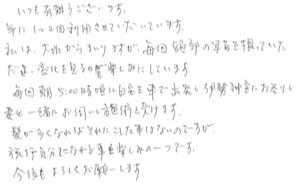 いつも有難うございます。
年に1〜2回利用させていただいています。
私は、大山からまいりますが、毎回頭部の写真を撮っていた
だき、変化を見るの楽しみにしています。
毎回朝5:00時頃に自宅を車で出発し伊勢神宮にお参りし
妻と一緒にお伺いし施術を受けます。
髪が多くなればそれにこした事はないのですが
旅行気分になれる事も楽しみの一つです。
今後もよろしくお願いします